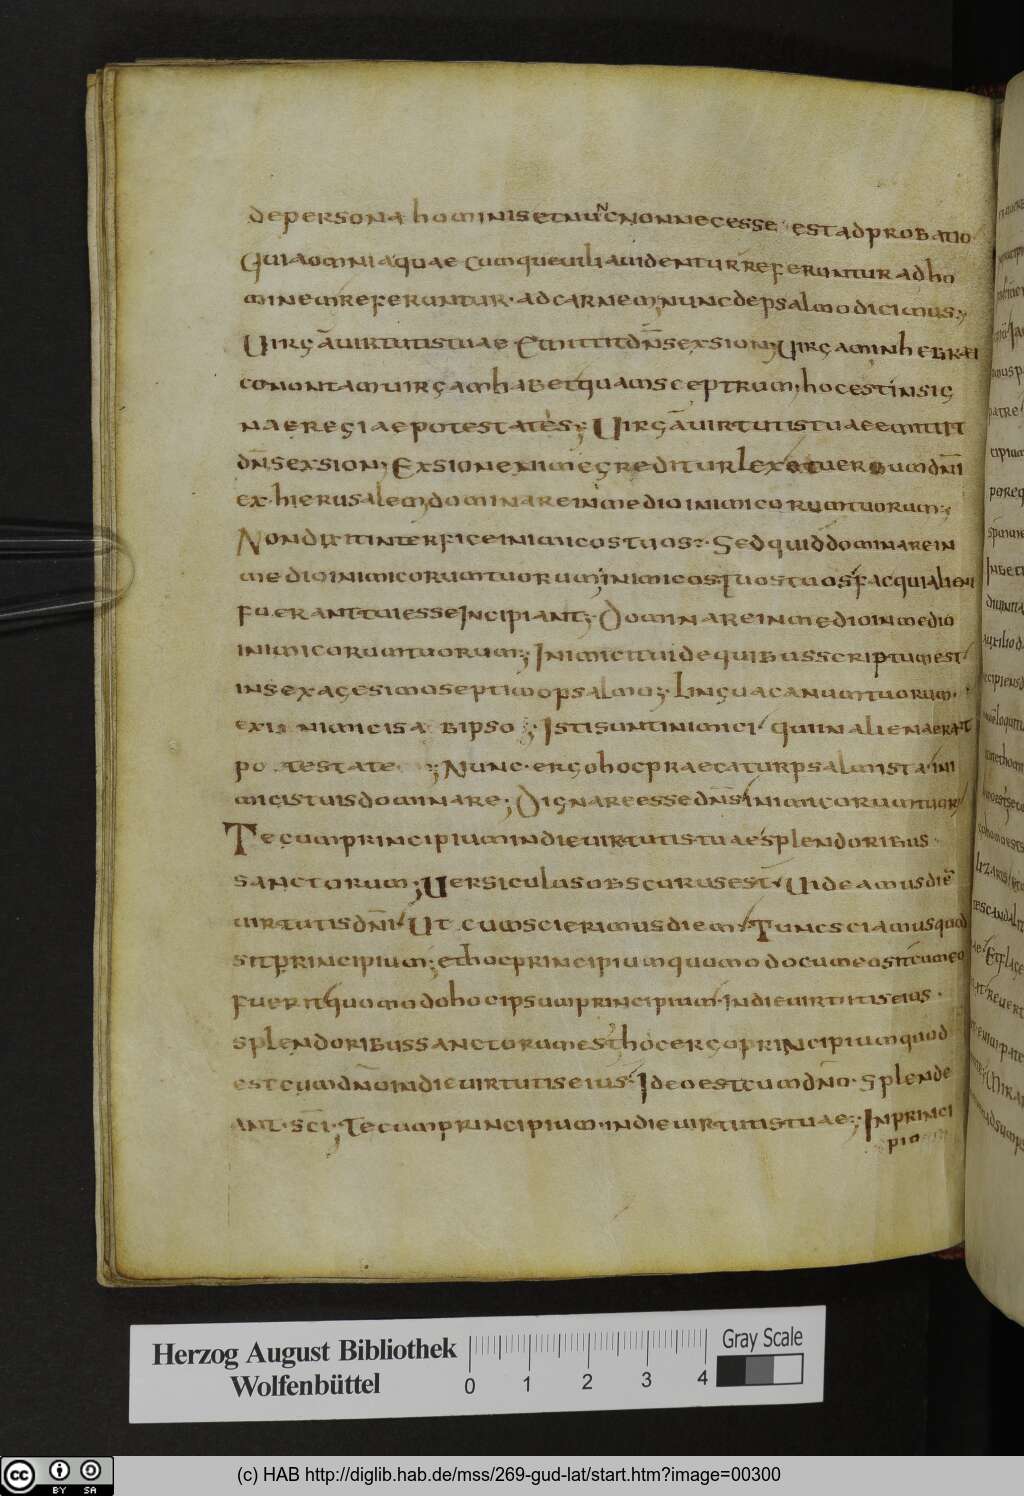 depersona hominis et nūc non necesse est ad probatio
Quia omnia quaecumque vilia videntur referuntur ad ho
minem referuntur · ad carnem; nunc de psalmo dicimus;
Virgā virtutis tuae · Emittit dn̄s ex sion; Virgam in hebrai
co non tam virgam habet quam sceptrum; hoc est insig
nae regiae potestates; Virgā virtutis tuae emittit
dn̄s ex sion; Ex sion enim egreditur lex et verbum dn̄i
ex hierusalem dominare in medio inimicorum tuorum;
Non dixit interfice inimicos tuos; Sed quid dominare in
medio inimicorum tuorum; inimicos tuos tuos facqui alieni
fuerant tui esse Incipiant; Dominare in medio
inimicorum tuorum; Inimici tui de quibus scriptum est
in sexagesimo septimo psalmo; Lingua canum tuorum ·
ex inimicis ab ipso; Isti sunt inimici qui in aliena erant
potestate; Nunc · ergo hoc praecatur psalmista · ini
micis tuis dominare; Dignare esse dn̄s inimicorum tuor
Tecum principium in die virtutis tuae splendoribus
sanctorum; Versiculus obscurus est̄ Videamus diē
virtutis dn̄i Ut cum scierimus diem; Tunc sciamus quod
sit principium; et hoc principium quomodo cum eo sit cum eo
fuerit quomodo hoc ipsum principium · in die virtutis eius ·
splendoribus sanctorum est hoc ergo principium quod
est cum dn̄o in die virtutis eius; Ideo est cum dn̄o · Splende
ant · sc̄i · Tecum principium · in die virtutis tuae; In princi
pio
Herzog August Bibliothek
Wolfenbüttel
0 1 2 3 4
Gray Scale
cc BY SA
(c) HAB http://diglib.hab.de/mss/269-gud-lat/start.htm?image=00300